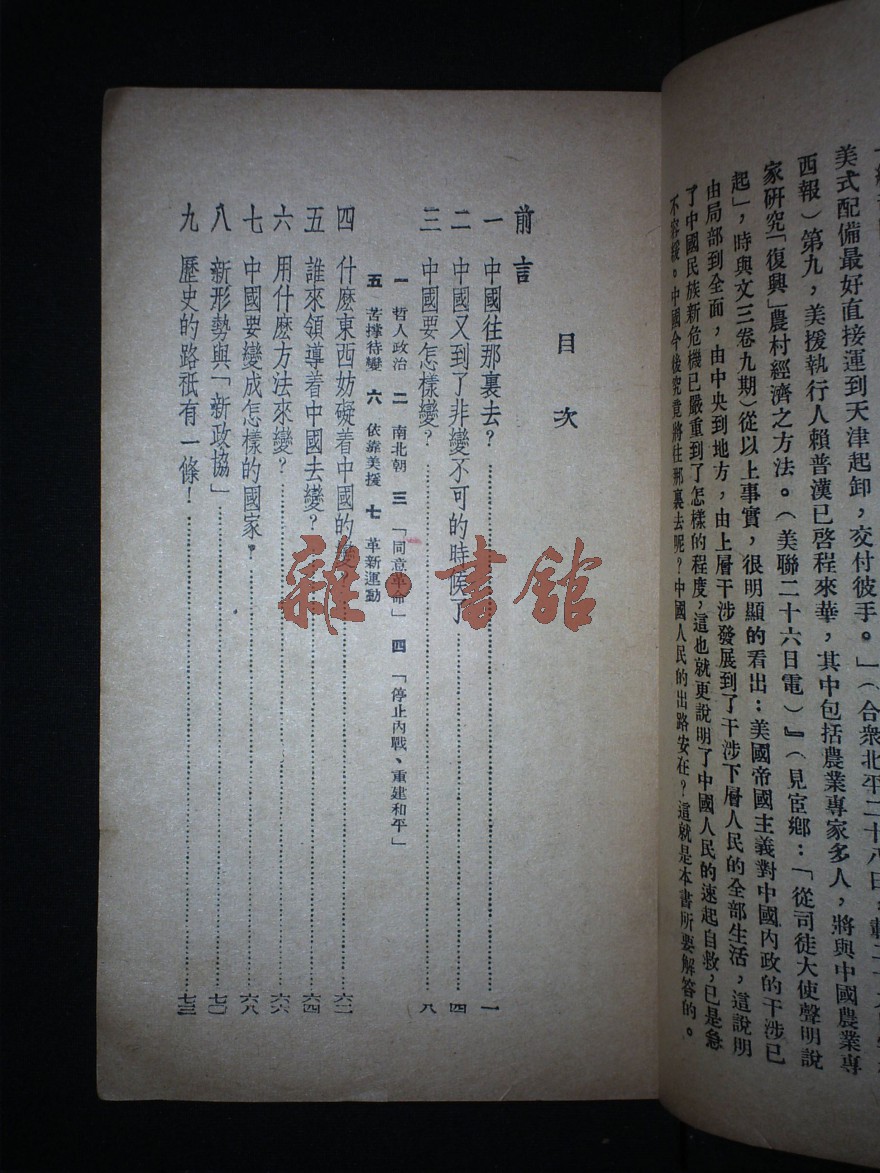 美式配備最好直接運到天津起卸，交付彼手。」（合衆北平二十八日，載二十
西報）第九，美援執行人賴普漢已啓程來華，其中包括農業專家多人，將與中國農業專
家研究「復興」農村經濟之方法。（美聯二十六日電）』（見宦鄉：「從司徒大使聲明說
起」，時與文三卷九期）從以上事實，很明顯的看出：美國帝國主義對中國內政的干涉已
由局部到全面，由中央到地方，由上層干涉發展到了干涉下層人民的全部生活，這說明
了中國民族新危機已嚴重到了怎樣的程度，這也就更說明了中國人民的速起自救，已是急
不容緩。中國今後究竟將往那裏去呢？中國人民的出路安在？這就是本書所要解答的。
目次
前言
一 中國往那裏去？……一
二 中國又到了非變不可的時候了……四
三 中國要怎樣變？……八
一 哲人政治 二 南北朝 三 「同意革命」 四 「停止內戰、重建和平」
五 苦撑待變 六 依靠美援 七 革新運動
四 什麽東西妨礙着中國的變？……六二
五 誰來領導着中國去變？……六四
六 用什麽方法來變？……六六
七 中國要變成怎樣的國家？……六八
八 新形勢與「新政協」……七〇
九 歷史的路祇有一條！……七三
雜·書館